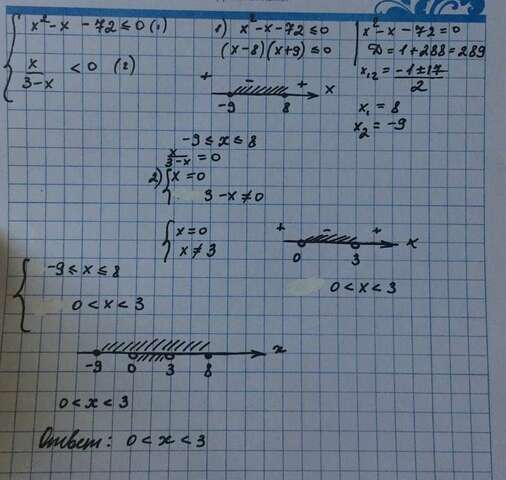 { x² - x - 72 ≤ 0 (1)
x/(3-x) < 0 (2)
1) x² - x - 72 ≤ 0
(x-8)(x+9) ≤ 0
+ - + x
-9 8
-9 ≤ x ≤ 8
x² - x - 72 = 0
D = 1 + 288 = 289
x₁,₂ = (-1 ± 17)/2
x₁ = 8
x₂ = -9
x/(3-x) = 0
2) { x = 0
3 - x ≠ 0
{ x = 0
x ≠ 3
+ - + x
0 3
0 < x < 3
{ -9 ≤ x ≤ 8
0 < x < 3
x
-9 0 3 8
0 < x < 3
Ответ: 0 < x < 3